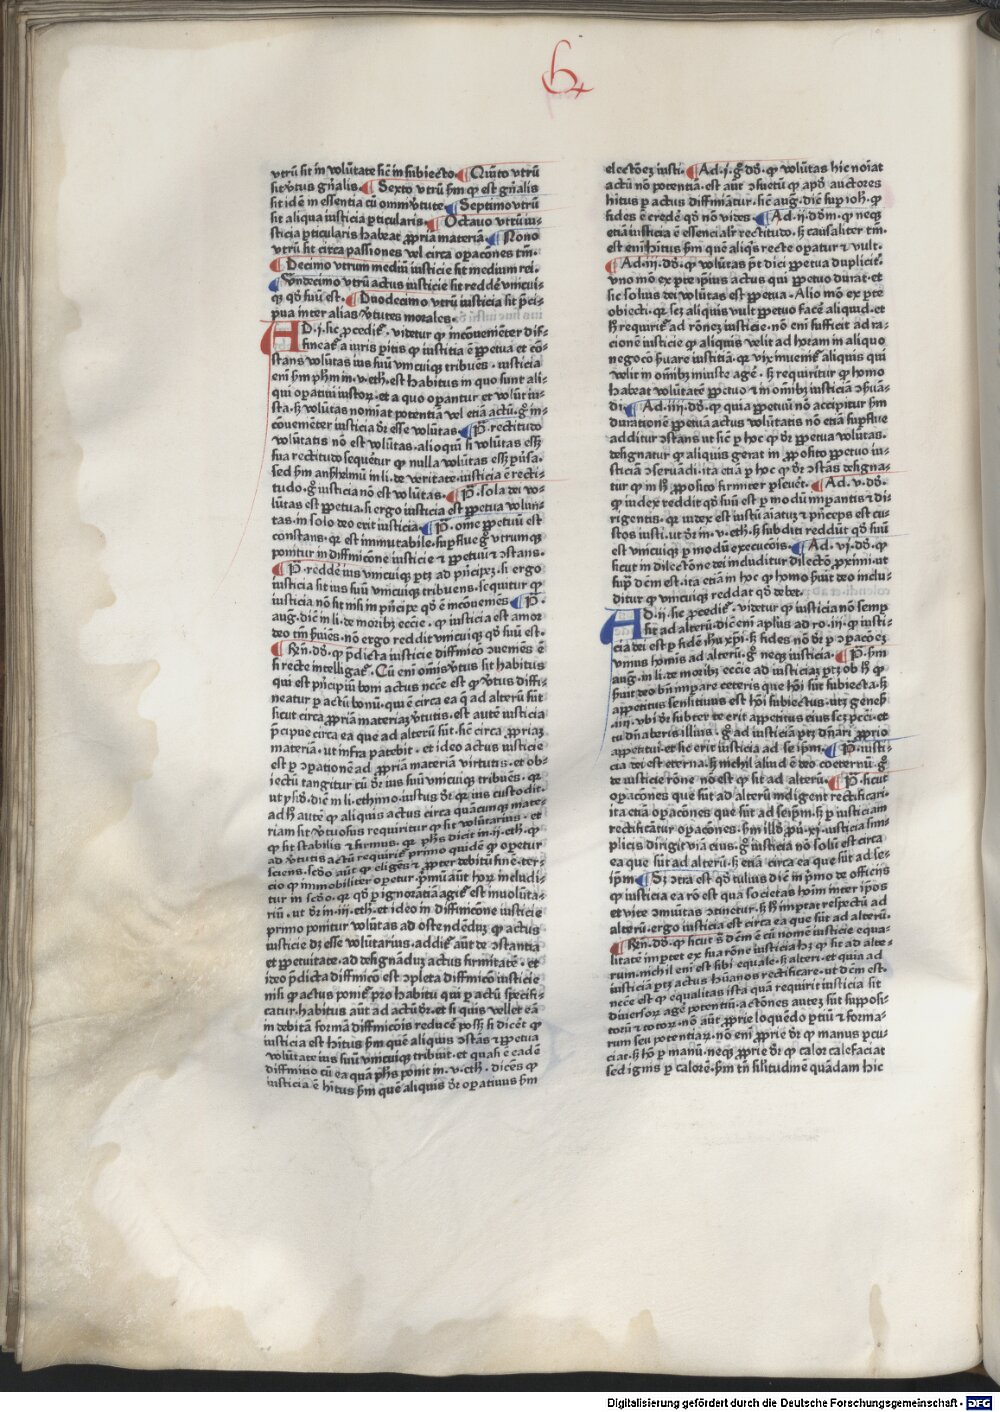 utrū sit in volūtate sic̄ in subiecto. Quīto utrū
sit v̓tus gn̄alis. Sexto utrū sm̄ qꝫ est gn̄alis
sit idē in essentia cū omni v̓tute. Septimo utrū
sit aliqua iusticia ꝑticularis. Octauo utrū iu-
sticia ꝑticularis habeat ꝓpriā materiā. Nono
utrū sit circa passiones vel circa oꝑacōnes tm̄.
Decimo utrum mediū iusticie sit medium rei.
Undecimo utrū actus iusticie sit reddē unicui-
qꝫ qd̄ suū est. Duodecimo utrū iusticia sit p̄ci-
pua inter alias v̓tutes morales.
AD .i. sic ꝓcedit̄. videtur qꝫ incōueniēter dif-
finiat̄ a iuris ꝑitis qꝫ iustitia ē ꝑpetua et cō-
stans volūtas ius suū unicuiqꝫ tribuēs. iusticia
eni sm̄ ph̄m in .v. eth̄. est habitus in quo sunt ali-
qui oꝑatiui iustoꝝ. et a quo oꝑantur et volūt iu-
sta. sꝫ volūtas noīat potentiā vel etiā actū. g̊ in-
cōueniēter iusticia dr̄ esse volūtas. P̄. rectitudo
volūtatis nō est volūtas. alioquī si volūtas esset
sua rectitudo sequēt̄ur qꝫ nulla volūtas esset ꝑūsa.
sed sm̄ anshelmū in li. de veritate. iusticia ē recti-
tudo. g̊ iusticia nō est volūtas. P̄. sola dei vo-
lūtas est ꝑpetua. si ergo iusticia est ꝑpetua volun-
tas. in solo deo erit iusticia. P̄. om̄e ꝑpetuū est
constans. qꝛ est immutabile. suꝑflue g̊ utrumqꝫ
ponitur in diffinicōne iusticie ⁊ ꝑpetuū ⁊ ꝯstans.
P̄. reddē ius unicuiqꝫ ꝑtꝫ ad p̄ncipeꝫ. si ergo
iusticia sit ius suū unicuiqꝫ tribuens. sequitur qꝫ
iusticia nō sit nisi in p̄ncipe qd̄ ē incōueniēs. P̄.
aug. dic̄ in li. de moribꝫ eccl̄ie. qꝫ iusticia est amor
deo tm̄ s̓uiēs. nō ergo reddit unicuiqꝫ qd̄ suū est.
Rn̄. dd̄. qꝫ p̄dicta iusticie diffinicō ꝯueniēs ē
si recte intelligat̄. Cū eni omīs v̓tus sit habitus
qui est p̄ncipiū boni actus nc̄ce est qꝫ v̓tus diffi-
neatur ꝑ actū bonū. qui ē circa ea q̄ ad alterū sūt
sicut circa ꝓpriā materiaꝫ v̓tutis. est autē iusticia
p̄cipue circa ea que ad alterū sūt. sic̄ circa ꝓpriaꝫ
materiā. ut infra patebit. et ideo actus iusticie
est ꝑ ꝯꝑationē ad ꝓpriā materiā virtutis. et ob-
iectū tangitur cū dr̄ ius suū unicuiqꝫ tribuēs. qꝛ
ut ysid̄. dic̄ in li. ethimo. iustus dr̄ qꝛ ius custodit.
ad h̄ autē qꝫ aliquis actus circa quācunqꝫ mate-
riam sit v̓tuosus requiritur qꝫ sit volūtarius. et
qꝫ sit stabilis ⁊ firmus. qꝛ ph̄s dicit in .ii. eth̄. qꝫ
ad v̓tutis actū requirit̄ primo quidē qꝫ oꝑetur
sciens. scd̄o aūt qꝫ eligēs ⁊ ꝓpter debitū finē. ter-
cio qꝫ immobiliter oꝑetur. p̄mū aūt hoꝝ includi-
tur in scd̄o. qꝛ qd̄ ꝑ ignorātiā agit̄ est inuolūta-
riū. ut dr̄ in .iii. eth̄. et ideo in diffinicōne iusticie
primo ponitur volūtas ad ostendēduꝫ qꝫ actus
iusticie dꝫ esse volūtarius. addit̄ aūt de ꝯstantia
et ꝑpetuitate. ad designāduꝫ actus firmitatē. et
ideo p̄dicta diffinicō est ꝯpleta diffinicō iusticie
nisi qꝫ actus ponit̄ pro habitu qui ꝑ actū specifi-
catur. habitus aūt ad actū dr̄. et si quis vellet eā
in debitā formā diffinicōis reducē posset si dicēt qꝫ
iusticia est hitus sm̄ quē aliquis ꝯstāti ⁊ ꝑpetua
volūtate ius suū unicuiqꝫ tribuit. et quasi ē eadē
diffinitio cū ea quā ph̄s ponit in .v. eth̄. dicēs qꝫ
iusticia ē hitus sm̄ quē aliquis dr̄ oꝑatiuus sm̄
electōneꝫ iusti. Ad .i. g̊ dd̄. qꝫ volūtas hic noīat
actū nō potentiā. est aūt ꝯsuetū qꝫ apd̄ auctores
hitus ꝑ actus diffiniātur. sic̄ aug. dic̄ suꝑ ioh̄. qꝫ
fides ē credē qd̄ nō vides. Ad .ii. dd̄m. qꝫ neqꝫ
etiā iusticia ē essencialr̄ rectitudo. sꝫ causaliter tm̄.
est eni hitus sm̄ quē aliqͥs recte oꝑatur ⁊ vult.
Ad .iii. dd̄. qꝫ volūtas p̄t dici ꝑpetua duplicit̄.
uno mō ex ꝑte ip̄ius actus qui ꝑpetuo durat. et
sic solius dei volūtas est ꝑpetua. Alio mō ex ꝑte
obiecti. qꝛ scꝫ aliquis vult ꝑpetuo facē aliquid. et
h̄ requirit̄ ad rōneꝫ iusticie. nō eni sufficit ad ra-
cionē iusticie qꝫ aliquis velit ad horam in aliquo
negocō s̓uare iustitiā. qꝛ vix inuenit̄ aliquis qui
velit in oīnibꝫ iniuste agē. sꝫ requiritur qꝫ homo
habeat volūtatē ꝑpetuo ⁊ in oīnibꝫ iusticiā ꝯs̓uā-
di. Ad .iiii. dd̄. qꝫ quia ꝑpetuū nō accipitur sm̄
durationē ꝑpetuā actus volūtatis nō etiā suꝑflue
additur ꝯstans ut sic̄ ꝑ hoc qꝫ dr̄ ꝑpetua volūtas.
designatur qꝫ aliquis gerat in ꝓposito ꝑpetuo iu-
sticiā ꝯseruādi. ita etiā ꝑ hoc qꝫ dr̄ ꝯstās designa-
tur qꝫ in h̄ ꝓposito firmiter ꝑseuēt. Ad .v. dd̄.
qꝫ iudex reddit qd̄ suū est ꝑ modū imꝑantis ⁊ di-
rigentis. qꝛ iudex est iustū aīatuꝫ ⁊ p̄nceps est cu-
stos iusti. ut dr̄ in .v. eth̄. sꝫ subditi reddūt qd̄ suū
est unicuiqꝫ ꝑ modū execucōis. Ad .vi. dd̄. qꝫ
sicut in dilectōne dei includitur dilectō ꝓximi. ut
suꝑ dc̄m est. ita etiā in hoc qꝫ homo s̓uit deo inclu-
ditur qꝫ unicuiqꝫ reddat qd̄ debet.
AD .ii. sic ꝓcedit̄. videtur qꝫ iusticia nō semꝑ
sit ad alterū. dic̄ eni apl̄us ad ro .iii. qꝫ iusti-
cia dei est ꝑ fidē ih̄u xp̄i. sꝫ fides nō dr̄ ꝑ ꝯꝑacōeꝫ
unius hoīnis ad alterū. g̊ neqꝫ iusticia. P̄. sm̄
aug. in li. de moribꝫ eccl̄ie ad iusticiaꝫ ꝑtꝫ ob h̄ qꝫ
s̓uit deo bn̄ imꝑare ceteris que hoī sūt subiecta. sꝫ
appetitus sensitiuus est hoī subiectus. ut ptꝫ geneꝭ
.iiii. ubi dr̄ subter te erit appetitus eius scꝫ pcc̄i. et
tu dn̄aberis illius. g̊ ad iusticiā ꝑtꝫ dn̄ari ꝓprio
appetitui. et sic erit iusticia ad seip̄m. P̄. iusti-
cia dei est eterna. sꝫ nichil aliud ē deo coeternū. g̊
de iusticie rōne nō est qꝫ sit ad alterū. P̄. sicut
oꝑacōnes que sūt ad alterū indigent rectificari.
ita etiā oꝑacōnes que sūt ad seip̄m. sꝫ ꝑ iusticiam
rectificātur oꝑacōnes. sm̄ illd̄ ꝓu. xi. iusticia sim-
plicis dirigit viā eius. g̊ iusticia nō solū est circa
ea que sūt ad alterū. sꝫ etiā circa ea que sūt ad se-
ip̄m. Sꝫ ꝯtra est qd̄ tulius dic̄ in p̄mo de officijs
qꝫ iusticia ea rō est qua societas hoīm inter ip̄os
et vite ꝯmūitas ꝯtinetur. sꝫ h̄ imꝑtat respectū ad
alterū. ergo iusticia est circa ea que sūt ad alterū.
Rn̄. dd̄. qꝫ sicut s̄ dc̄m ē cū nomē iusticie equa-
litatē imꝑtet ex sua rōne iusticia hꝫ qꝫ sit ad alte-
rum. nichil eni est sibi equale. sꝫ alteri. et quia ad
iusticiā ꝑtꝫ actus hūanos rectificare. ut dc̄m est.
nc̄ce est qꝫ equalitas ista quā requirit iusticia sit
diuersoꝝ agē potentiū. actōnes auteꝫ sūt suppōsi-
torū ⁊ totoꝝ. nō aūt ꝓprie loquēdo ꝑtiū ⁊ forma-
rum seu potentiaꝝ. nō eni ꝓprie dr̄ qꝫ manus ꝑcu-
ciat. sꝫ hō ꝑ manū. neqꝫ ꝓprie dr̄ qꝫ calor calefaciat
sed ignis ꝑ calorē. sm̄ tn̄ sil̄itudinē quādam hic
Digitalisierung gefördert durch die Deutsche Forschungsgemeinschaft - DFG